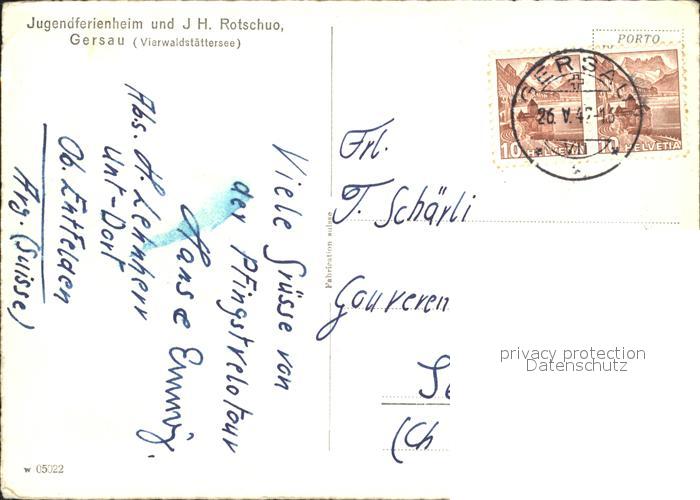 Jugendferienheim und J H. Rotschuo,
Gersau (Vierwaldstättersee)
Viele Grüsse von
der Pfingstvelotour
Hans & Emmy.
Abs. H. Lernherr
Unt-Dorf
Ob. Entfelden
Arg. (Suisse)
w 05022
Fabrication suisse
PORTO
GERSAU
26. V. 47-16
10 HELVETIA
10 HELVETIA
Frl.
T. Schärli
Gouveren
(Ch
privacy protection
Datenschutz